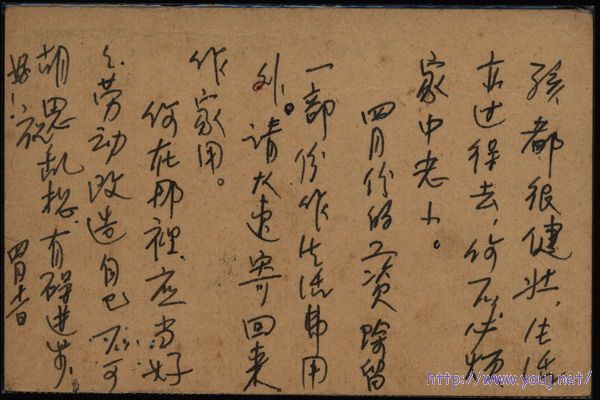 孩、都很健壮，生活
亦过得去，你不必烦
家中老小。
四月份的工资除留
一部份作生活费用
外。请火速寄回来
作家用。
你在那裡，应当好
劳动改造自己不可
胡思乱想，有碍进步，
祝
好！
四月十一日
http://www.youj.net/